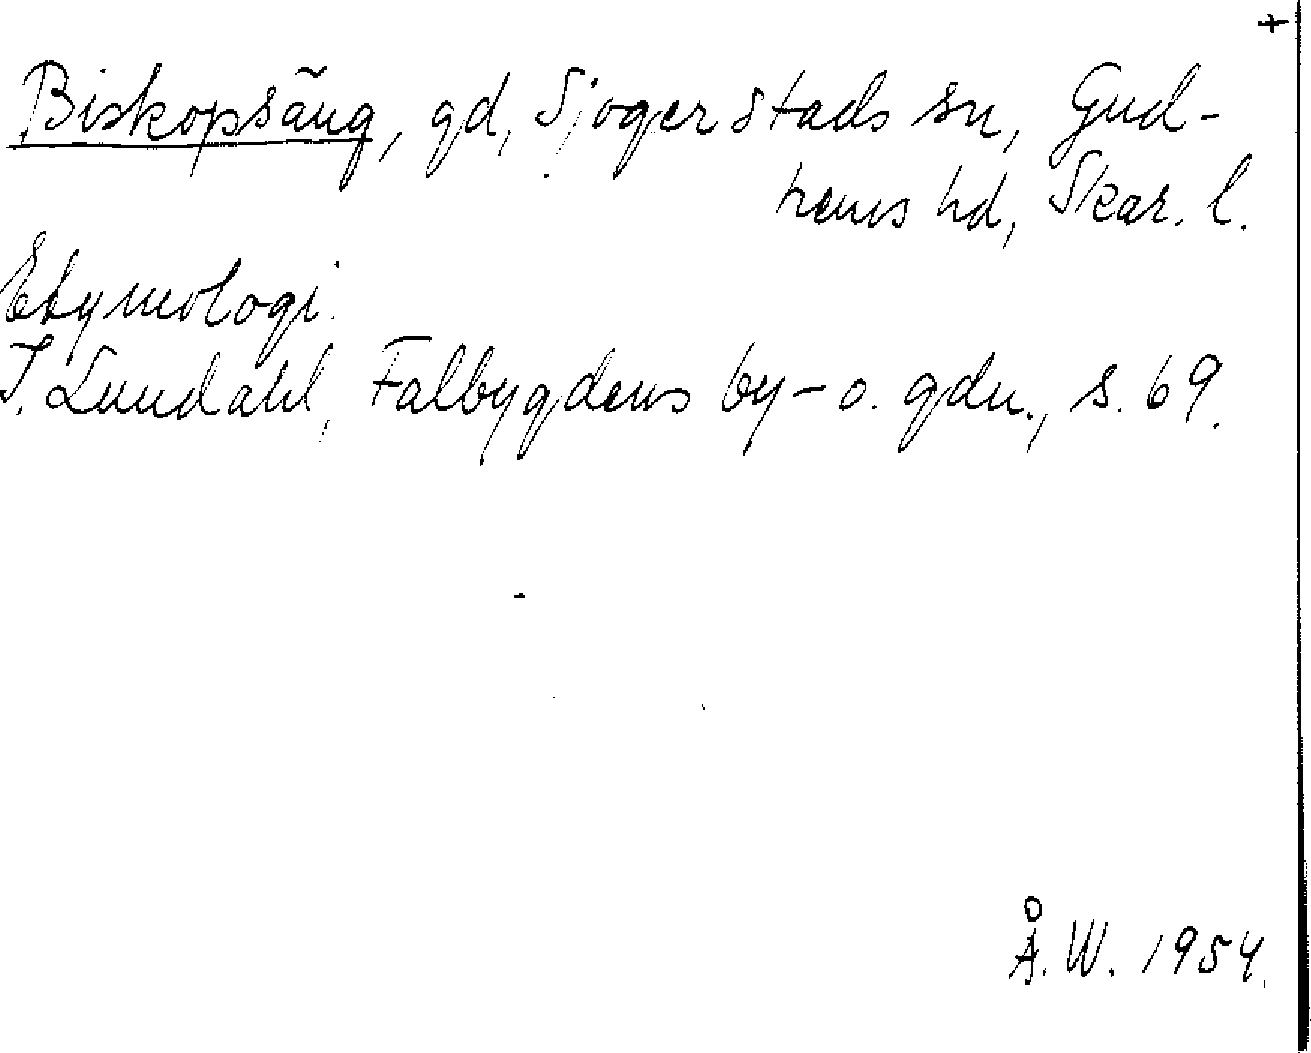 +
Biskopsäng, gd, Sjogerstads sn, Gud-
hems hd, Skar. l.
Etymologi.
I. Lundahl, Falbygdens by- o. gdn., s. 69.
Å. W. 1954.